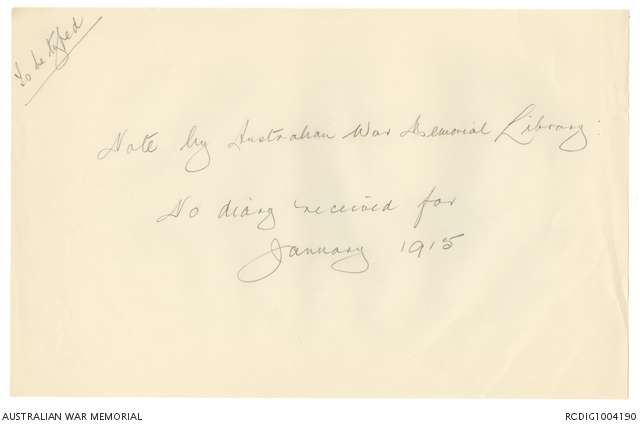 To be typed
Note by Australian War Memorial Library:
No diary received for
January 1915
AUSTRALIAN WAR MEMORIAL
RCDIG1004190